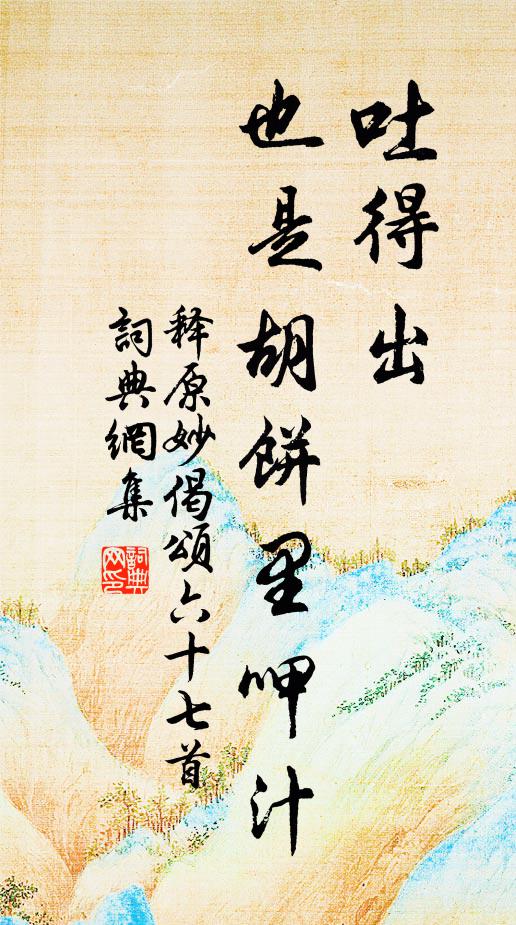 吐得出
也是胡餅里呷汁
释原妙偈頌六十七首
詞典網集
詞典网印